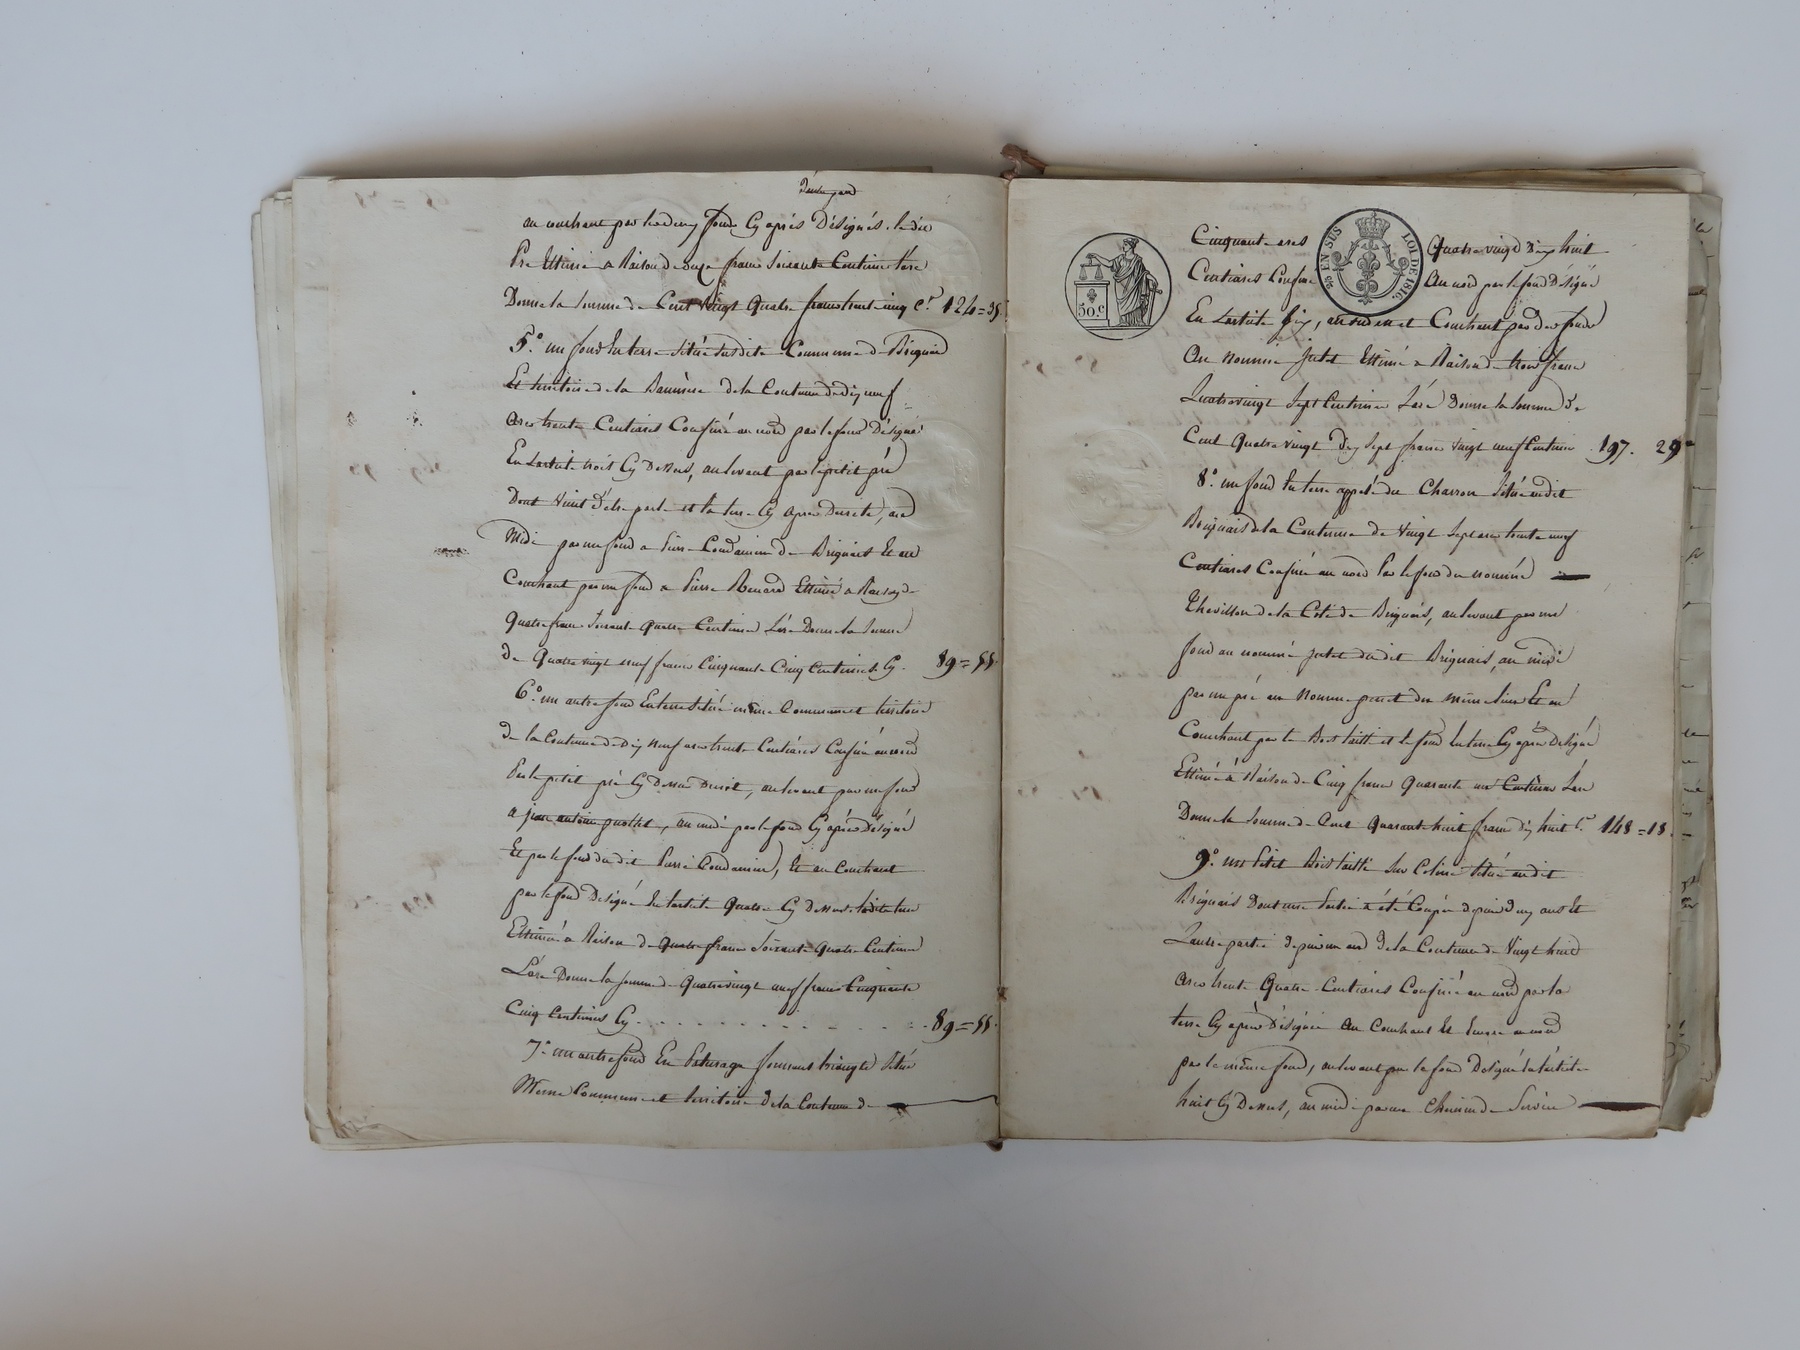 au couchant par les deux fonds Cy après Désignés. le dit
Pré Estimé a Raison de onze francs Soixante Centimes lare
Donne la Somme de Cent vingt Quatre francs trente cinq C.s 124=35
5.° un fond En terre Situé Susdite Commune de Brignais
Et territoire de la Bannière de la Contenue de dix neuf
ares trente Centiares Confiné au nord par le fond Désigné
En Larticle trois Cy Dessus, au levant par le petit pré
Dont vient d'être parlé et la terre Cy après Décrite, au
Midi par un fond a Pierre Condamin de Brignais Et au
Couchant par un fond a Pierre Renard Estimé a Raison de
Quatre francs Soixante Quatre Centimes L'are Donne la Somme
de Quatre vingt neuf francs Cinquante Cinq Centimes Cy. 89=55
6.° un autre fond En terre Situé même Commune et territoire
de la Contenue de Dix Neuf ares trente Centiares Confiné au nord
Par le petit pré Cy Dessus Décrit, au levant par un fond
a jean antoine , au midi par le fond Cy après Désigné
Et par le fond du dit Pierre Condamin, Et au Couchant
par le fond Désigné En larticle Quatre Cy Dessus
Estimé a Raison de Quatre francs Soixante Quatre Centimes
L'are Donne la Somme de Quatre vingt neuf francs Cinquante
Cinq Centimes Cy . . . . . . . . . . 89=55
7.° un autre fond En Paturage formant triangle Situé
Meme Commune et territoire de la Contenue de
Cinquante ares Quatre vingt Dix huit
Centiares Confiné Au nord par le fond Désigné
En Larticle Six, au et Couchant par des fonds
Au nommé Jutet Estimé a Raison de trois francs
Quatre vingt Sept Centimes L'are Donne la Somme de
Cent Quatre vingt dix Sept francs vingt neuf Centimes 197. 29
8.° un fond En terre appelé du Charron Situé audit
Brignais de la Contenue de vingt Sept ares trente neuf
Centiares Confiné au nord Par le fond du nommé
Thevillon de la Coté de Brignais, au levant par un
fond au nommé Jutet dudit Brignais, au midi
par un pré au Nommé du même lieu Et au
Couchant par le Bois tailli et le fond En terre Cy après Désigné
Estimé a Raison de Cinq francs Quarante un Centimes Lare
Donne la Somme de Cent Quarante huit francs dix huit C.s 148=18
9.° un Petit Bois taillé Sur Coline Situé audit
Brignais Dont une Partie a été Coupée depuis deux ans Et
Lautre partie depuis un an de la Contenue de Vingt huit
ares trente Quatre Centiares Confiné au nord par la
terre Cy après Désignée Au Couchant Et Encore au nord
par le même fond, au levant par le fond Désigné En larticle
huit Cy Dessus, au midi par un Chemin de Service
50.c
EN SUS
LOI DE 1816